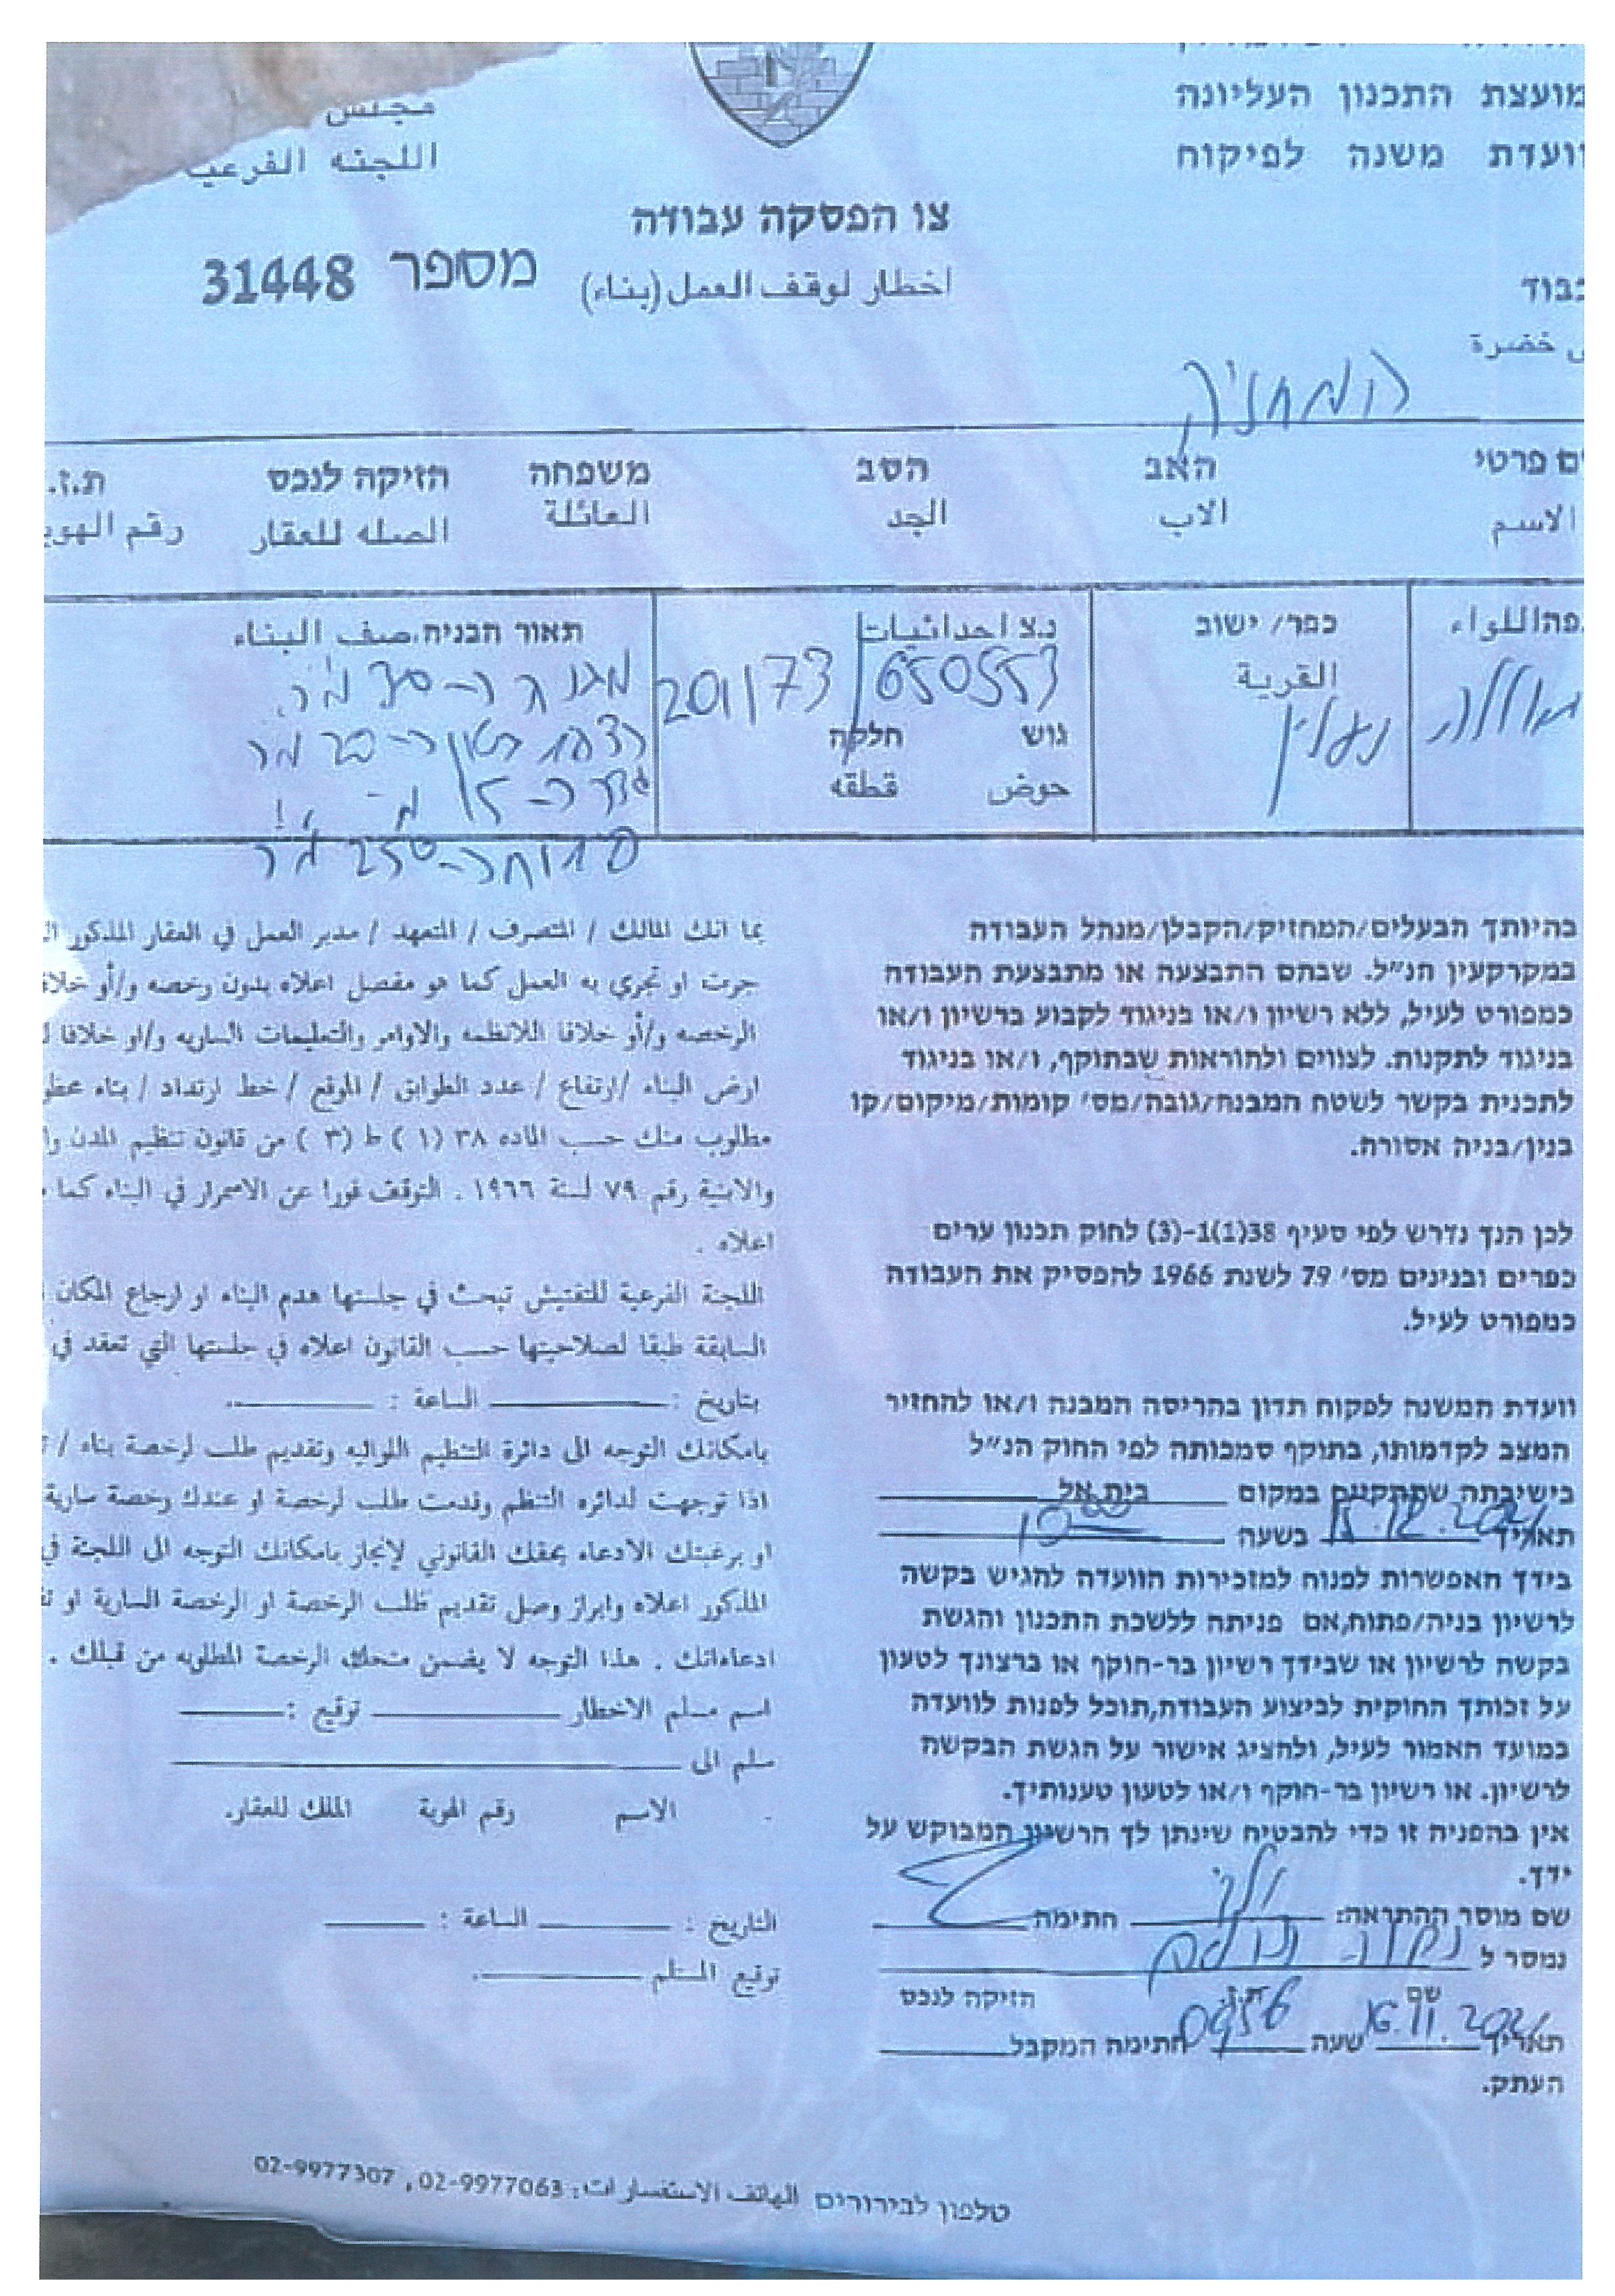 מועצת התכנון העליונה
וועדת משנה לפיקוח
مجلس
اللجنه الفرعيه
צו הפסקה עבודה
اخطار لوقف العمل (بناء)
מספר 31448
כבוד
خضرة
המחזיק
שם פרטי האב הסב משפחה הזיקה לנכס ת.ז.
الاسم الاب الجد العائلة الصله للعقار رقم الهوية
נפה اللواء
כפר/ ישוב
القرية
נעלין
נ.צ احداثيات
201173 650553
גוש חלקה
حوض قطقه
תאור הבניה. صف البناء
מבנה כ-
רצפת בטון כ-20 מ"ר
גדר כ-15 מ'
כ-250 מ"ר
בהיותך הבעלים/המחזיק/הקבלן/מנהל העבודה
במקרקעין הנ״ל. שבהם התבצעה או מתבצעת העבודה
כמפורט לעיל, ללא רשיון ו/או בניגוד לקבוע ברשיון ו/או
בניגוד לתקנות. לצווים ולהוראות שבתוקף, ו/או בניגוד
לתכנית בקשר לשטח המבנה/גובה/מס׳ קומות/מיקום/קו
בנין/בניה אסורה.
לכן הנך נדרש לפי סעיף 38(1)1-(3) לחוק תכנון ערים
כפרים ובנינים מס׳ 79 לשנת 1966 להפסיק את העבודה
כמפורט לעיל.
וועדת המשנה לפקוח תדון בהריסה המבנה ו/או להחזיר
המצב לקדמותו, בתוקף סמכותה לפי החוק הנ״ל
בישיבתה שתתקיים במקום בית אל
תאריך 15.12.2021 בשעה 10 00
בידך האפשרות לפנות למזכירות הוועדה להגיש בקשה
לרשיון בניה/פתוח,אם פניתה ללשכת התכנון והגשת
בקשה לרשיון או שבידך רשיון בר-תוקף או ברצונך לטעון
על זכותך החוקית לביצוע העבודה,תוכל לפנות לוועדה
במועד האמור לעיל, ולהציג אישור על הגשת הבקשה
לרשיון. או רשיון בר-תוקף ו/או לטעון טענותיך.
אין בהפניה זו כדי להבטיח שינתן לך הרשיון המבוקש על
ידך.
שם מוסר ההתראה: חתימה
נמסר ל
שם ת.ז. הזיקה לנכס
תאריך 16.11.2021 שעה 0956 חתימת המקבל
העתק.
بما انك المالك / المتصرف / المتعهد / مدير العمل في العقار المذكور
جرت او تجري به العمل كما هو مفصل اعلاه بدون رخصه و/أو خلافا
الرخصه و/أو خلافا للانظمه والاوامر والتعليمات الساريه و/او خلافا
ارض البناء /ارتفاع / عدد الطوابق / الموقع / خط ارتداد / بناء
مطلوب منك حسب الماده ٣٨ (١) ط (٣) من قانون تنظيم المدن
والابنية رقم ٧٩ لسنة ١٩٦٦ . التوقف فورا عن الاسمرار في البناء كما
اعلاه .
اللجنة الفرعية للتفتيش تبحث في جلستها هدم البناء او ارجاع المكان
السابقة طبقا لصلاحيتها حسب القانون اعلاه في جلستها التي تعقد في
بتاريخ : الساعة :
بامكانك التوجه الى دائرة التنظيم اللوائيه وتقديم طلب لرخصة بناء /
اذا توجهت لدائره التنظم وقدمت طلب لرخصة او عندك رخصة سارية
او برغبتك الادعاء بحقك القانوني لإنجاز بامكانك التوجه الى اللجنة في
المذكور اعلاه وابراز وصل تقديم طلب الرخصة او الرخصة السارية او
ادعاءاتك . هذا التوجه لا يضمن منحك الرخصة المطلوبه من قبلك .
اسم مسلم الاخطار توقيع :
سلم الى
الاسم رقم الهوية الملك للعقار.
التاريخ : الساعة :
توقيع المستلم
טלפון לבירורים الهاتف الاستفسارات: 02-9977063 , 02-9977307